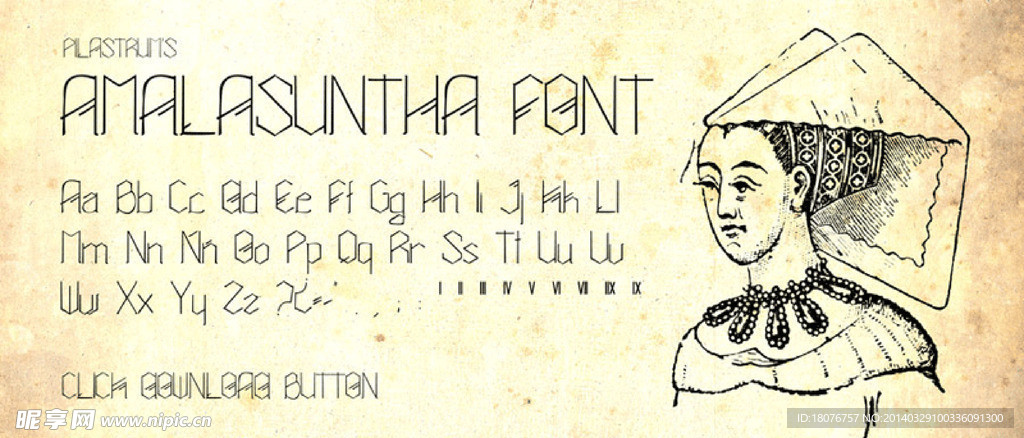 PILASTRUM'S
AMALASUNTHA FONT
Aa Bb Cc Dd Ee Ff Gg Hh Ii Jj Kk Ll
Mm Nn Oo Pp Qq Rr Ss Tt Uu Vv
Ww Xx Yy Zz
I II III IV V VI VII IIX IX
CLICK DOWNLOAD BUTTON
昵享网 www.nipic.cn
ID:18076757 NO:20140329100336091300